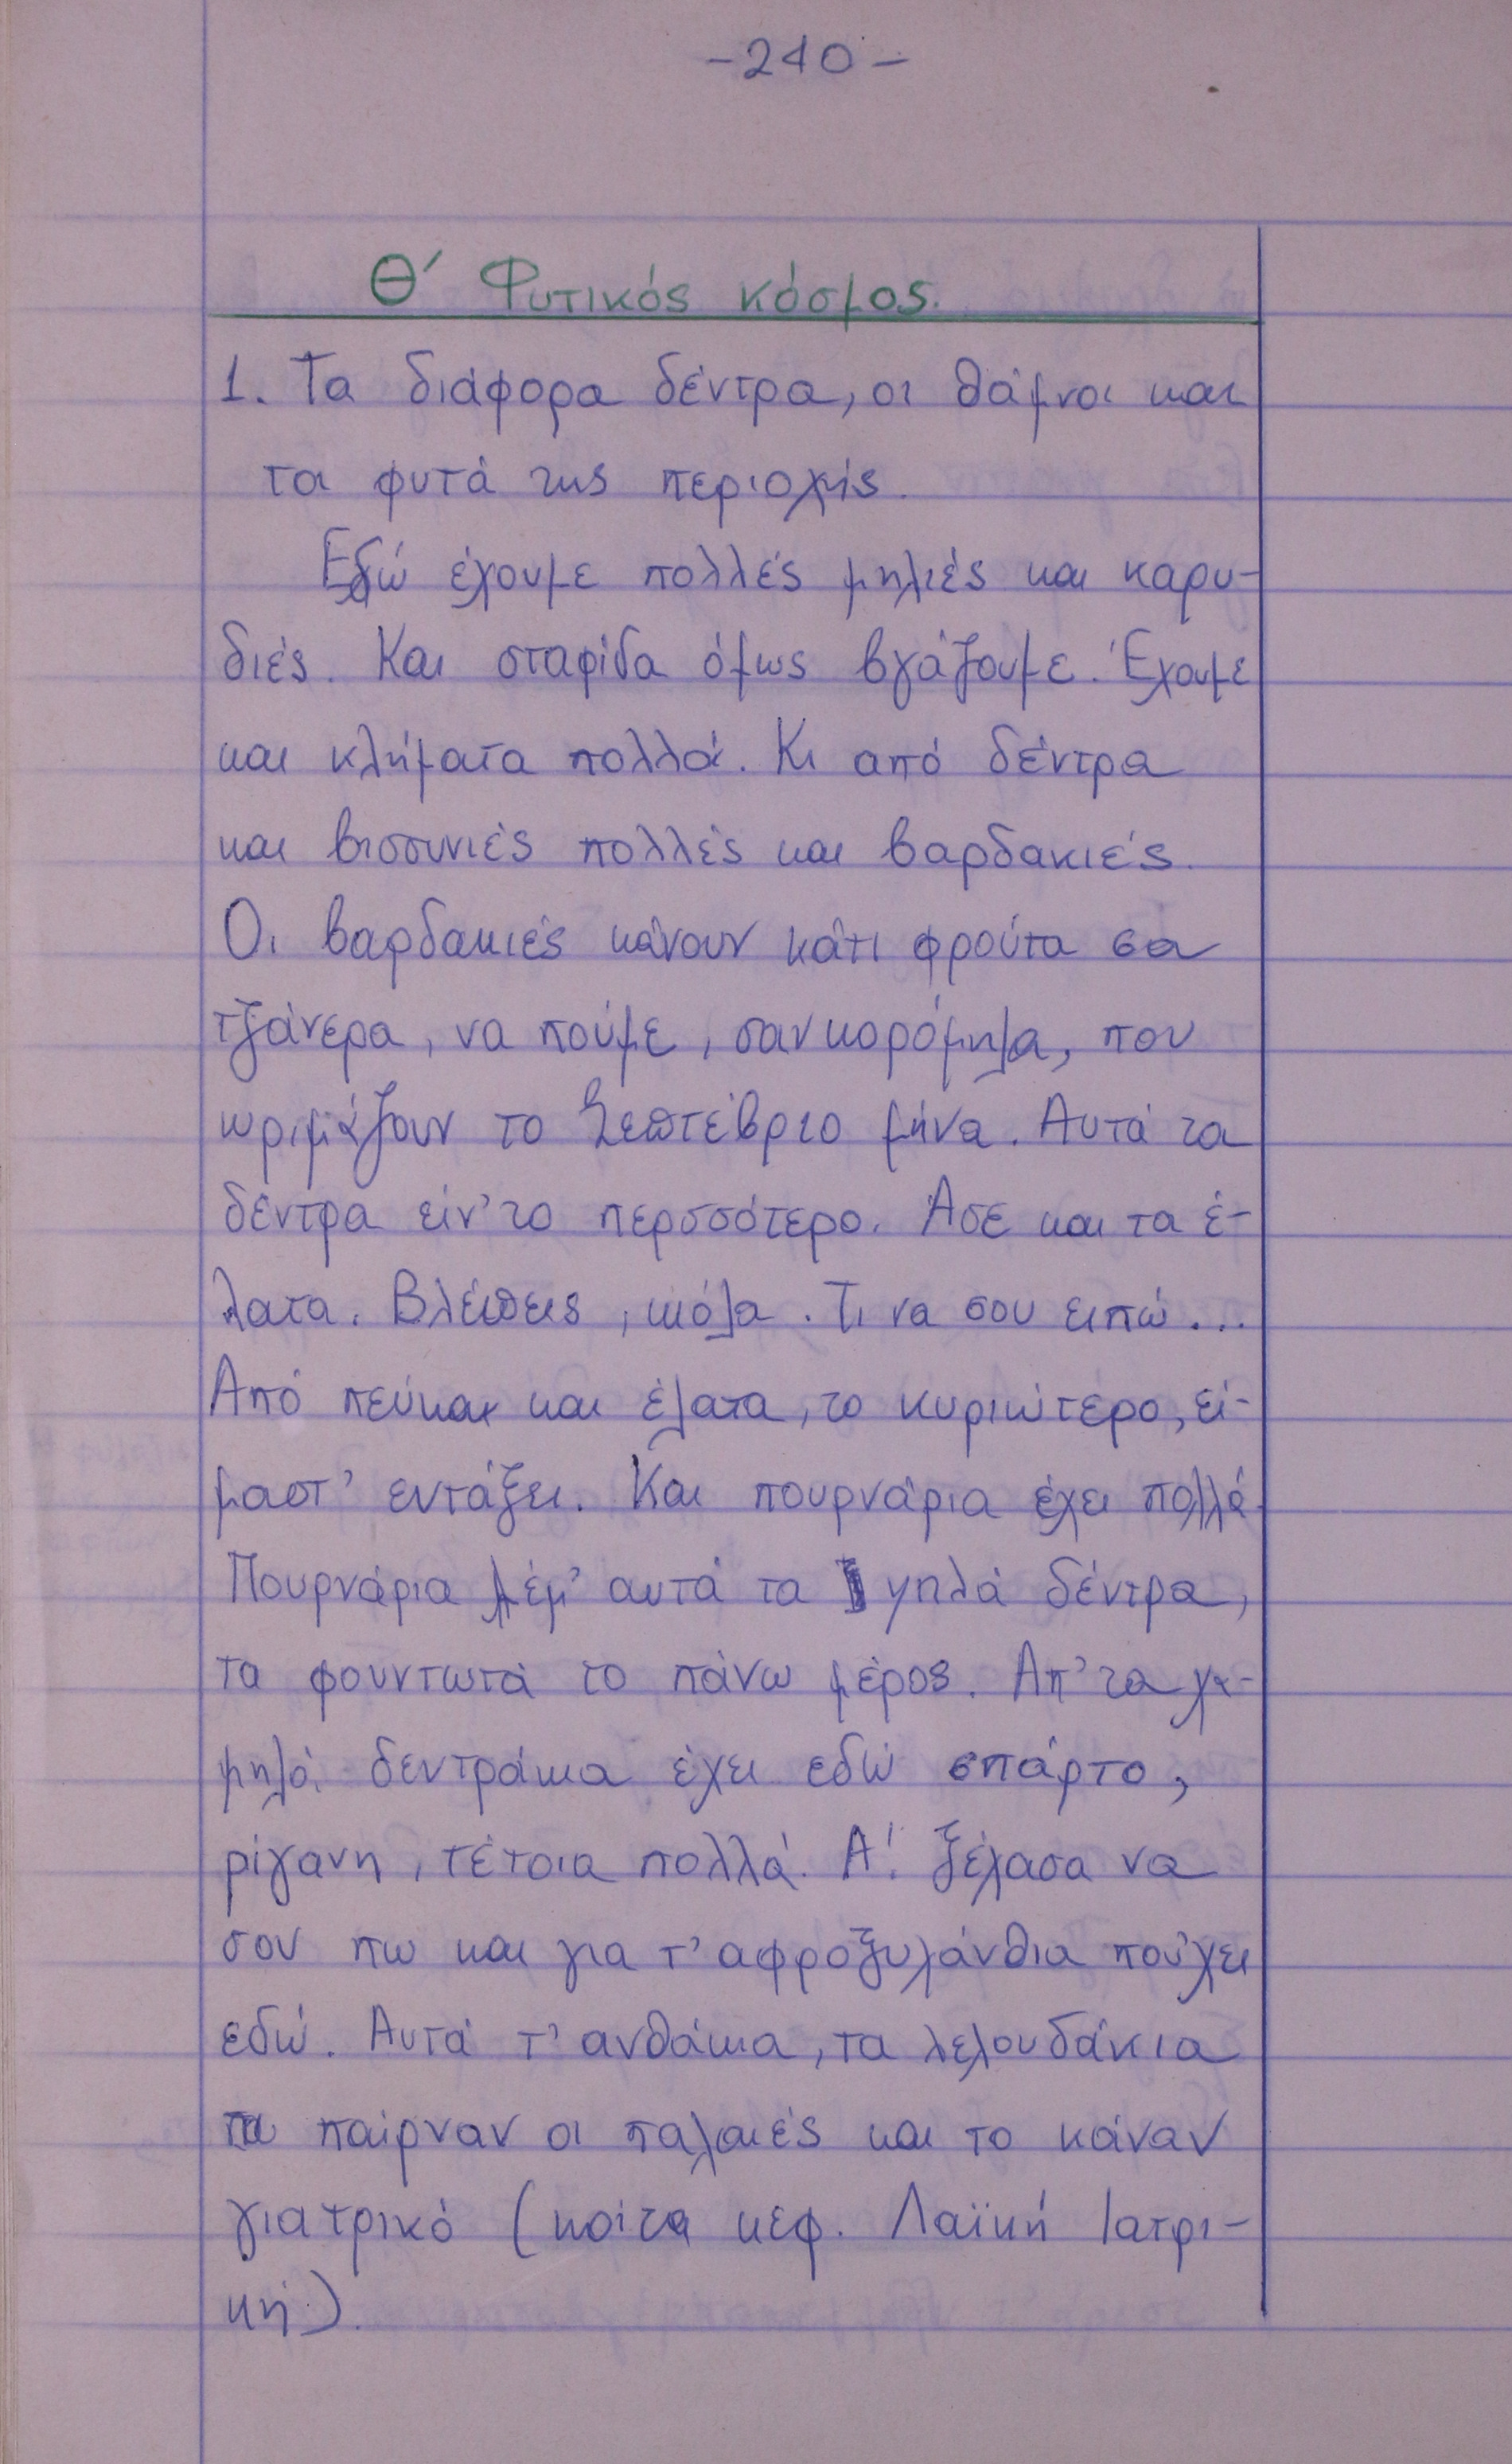 -240-
Θ' Φυτικός κόσμος.
1. Τα διάφορα δέντρα, οι θάμνοι και
τα φυτά της περιοχής.
Εδώ έχουμε πολλές μηλιές και καρυ-
διές. Και σταφίδα όμως βγάζουμε. Έχουμε
και κλήματα πολλά. Κι από δέντρα
και βισσυνιές πολλές και βαρδακιές.
Οι βαρδακιές κάνουν κάτι φρούτα σα
τζάνερα, να πούμε, σαν κορόμηλα, που
ωριμάζουν το Σεπτέβριο μήνα. Αυτά τα
δέντρα είν' το περσσότερο. Άσε και τα έ-
λατα. Βλέπεις, κιόλα. Τι να σου ειπώ...
Από πεύκα και έλατα, το κυριώτερο, εί-
μαστ' εντάξει. Και πουρνάρια έχει πολλά.
Πουρνάρια λέμ' αυτά τα ψηλά δέντρα,
τα φουντωτά το πάνω μέρος. Απ' τα χα-
μηλά δεντράκια έχει εδώ σπάρτο,
ρίγανη, τέτοια πολλά. Α! ξέχασα να
σου πω και για τ' αφροξυλάνθια πούχει
εδώ. Αυτά τ' ανθάκια, τα λελουδάκια
τα παίρναν οι παλαιές και το κάναν
γιατρικό (κοίτα κεφ. Λαϊκή Ιατρι-
κή).